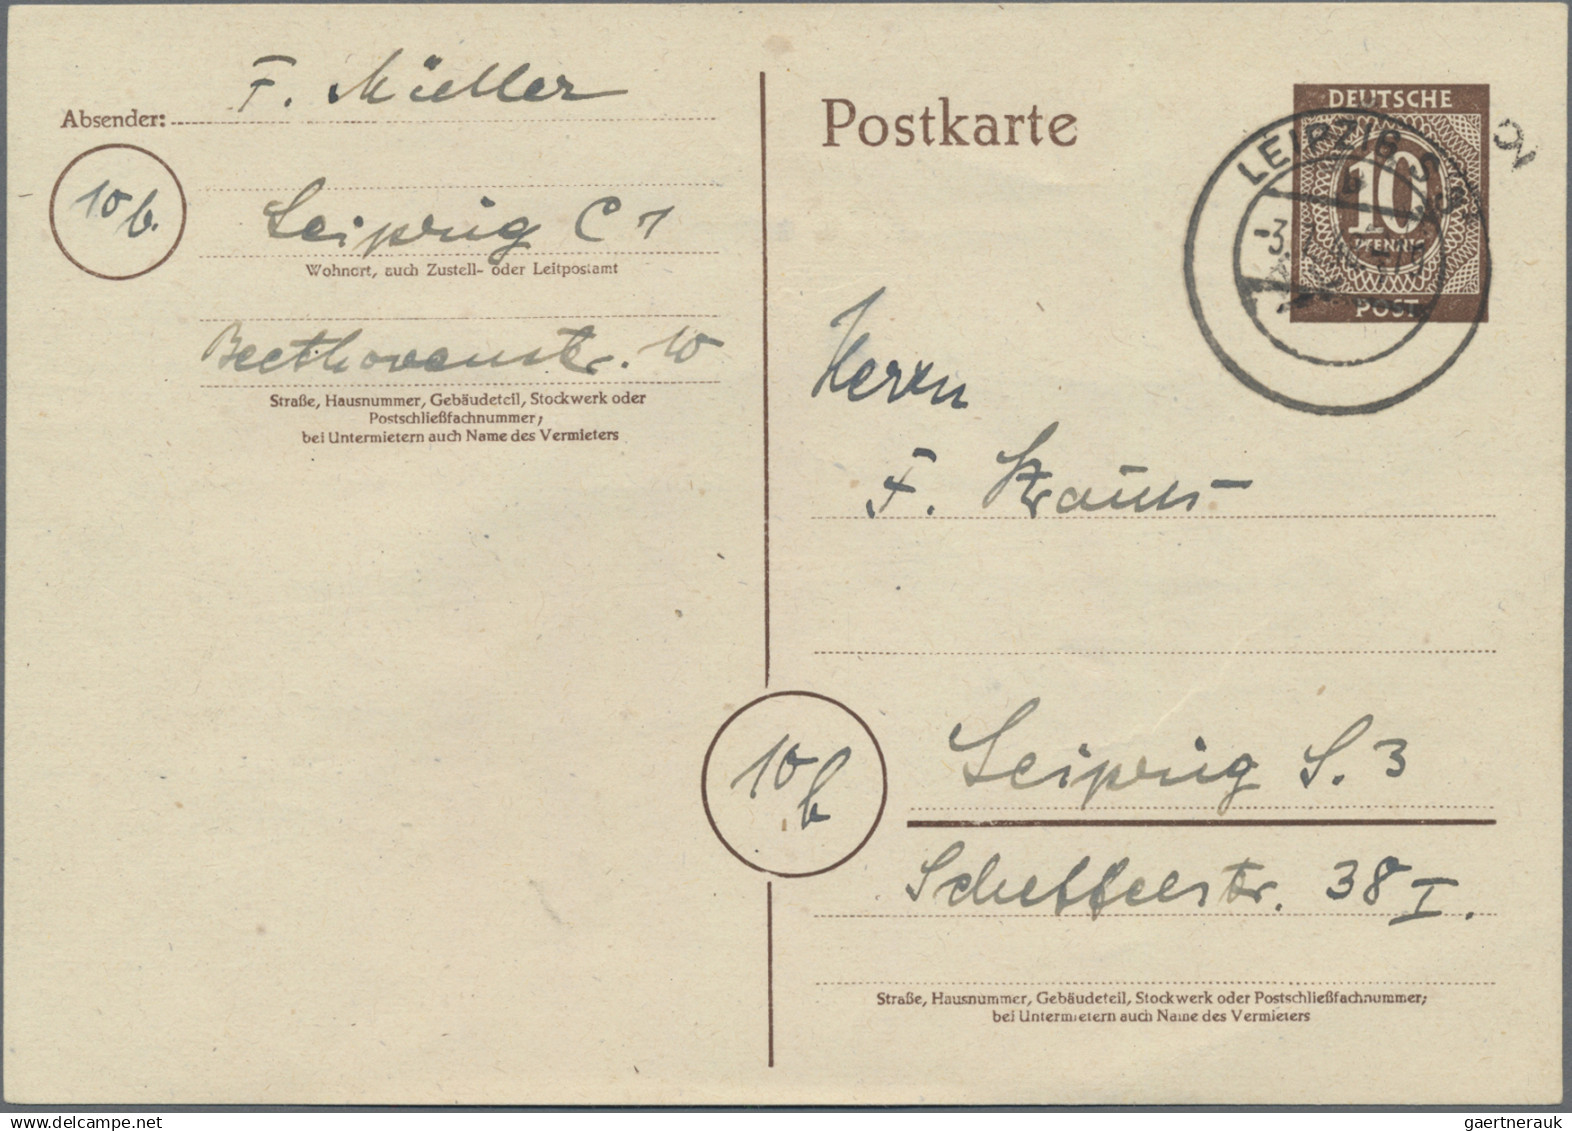 F. Müller
Absender:
10 b.
Leipzig C 1
Wohnort, auch Zustell- oder Leitpostamt
Beethovenstr. 10
Straße, Hausnummer, Gebäudeteil, Stockwerk oder
Postschließfachnummer;
bei Untermietern auch Name des Vermieters
Postkarte
DEUTSCHE
10
PFENNIG
POST
LEIPZIG S
-3.
Herrn
F. Krauss
10 b
Leipzig S. 3
Scheffelstr. 38 I.
Straße, Hausnummer, Gebäudeteil, Stockwerk oder Postschließfachnummer;
bei Untermietern auch Name des Vermieters
gaertnerauk